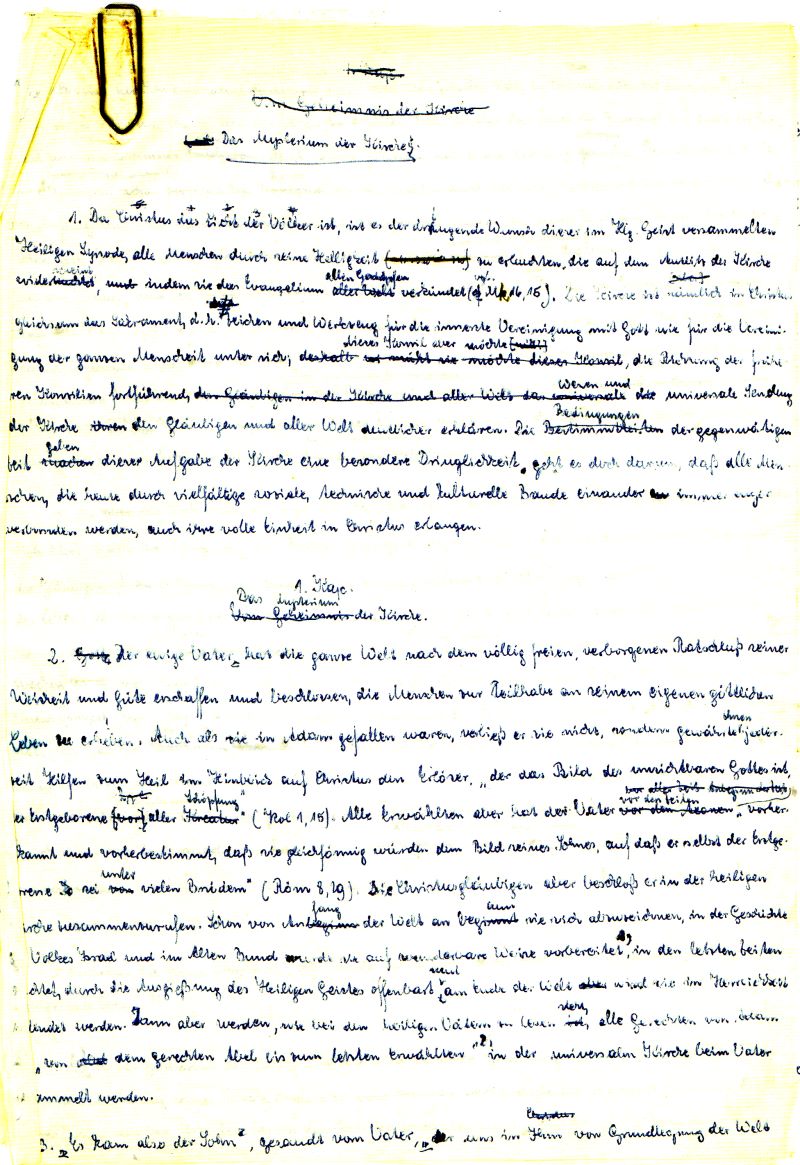 Vom Geheimnis der Kirche
Das Mysterium der Kirche
1. Da Christus das Licht der Völker ist, ist es der drängende Wunsch dieser im Hlg. Geist versammelten
Heiligen Synode, alle Menschen durch seine Helligkeit zu erleuchten, die auf dem Antlitz der Kirche
allen Geschöpfen
und indem sie das Evangelium aller Welt verkündet (Mk 16, 15). Die Kirche ist nämlich in Christus
gleichsam das Sakrament, d.h. Zeichen und Werkzeug für die innerste Vereinigung mit Gott wie für die Verei-
dieses Konzil aber möchte
gung der ganzen Menschheit unter sich; deshalb möchte dieses Konzil, die Richtung der frühe-
Wesen und
ren Konzilien fortführend, den Gläubigen in der Kirche und aller Welt das universale die universale Sendung
Bedingungen
der Kirche ihren den Gläubigen und aller Welt deutlicher erklären. Die Bestimmtheiten der gegenwärtigen
geben
Zeit machen dieser Aufgabe der Kirche eine besondere Dringlichkeit, geht es doch darum, daß alle Men-
schen, die heute durch vielfältige soziale, technische und kulturelle Bande einander immer enger
verbunden werden, auch ihre volle Einheit in Christus erlangen.
1. Kap.
Das Mysterium
Vom Geheimnis der Kirche.
2. Gott, Der ewige Vater, hat die ganze Welt nach dem völlig freien, verborgenen Ratschluß seiner
Weisheit und Güte erschaffen und beschlossen, die Menschen zur Teilhabe an seinem eigenen göttlichen
ihnen
Leben zu erheben. Auch als sie in Adam gefallen waren, verließ er sie nicht, sondern gewährte jeder-
zeit Hilfen zum Heil im Hinblick auf Christus den Erlöser, „der das Bild des unsichtbaren Gottes ist,
Schöpfung"
vor den Zeiten
er Erstgeborene (vor) aller Kreatur" (Kol 1, 15). Alle Erwählten aber hat der Vater vor den Äonen „vorher-
kannt und vorherbestimmt, daß sie gleichförmig würden dem Bild seines Sohnes, auf daß er selbst der Erstge-
unter
rene sei von vielen Brüdern" (Röm 8, 29). Die Christusgläubigen aber beschloß er in der heiligen
fang
irche zusammenzurufen. Schon von Anbeginn der Welt an beginnt sie sich abzuzeichnen, in der Geschichte
Volkes Israel und im Alten Bund wurde sie auf wunderbare Weise vorbereitet 1), in den letzten Zeiten
und
chtet, durch die Ausgießung des Heiligen Geistes offenbart, am Ende der Welt aber wird sie in Herrlichkeit
lendet werden. Dann aber werden, wie bei den heiligen Vätern zu lesen ist, alle Gerechten von Adam
„von dem gerechten Abel bis zum letzten Erwählten" 2) in der universalen Kirche beim Vater
ammelt werden.
3. „Es kam also der Sohn", gesandt vom Vater, der uns in Ihm vor Grundlegung der Welt